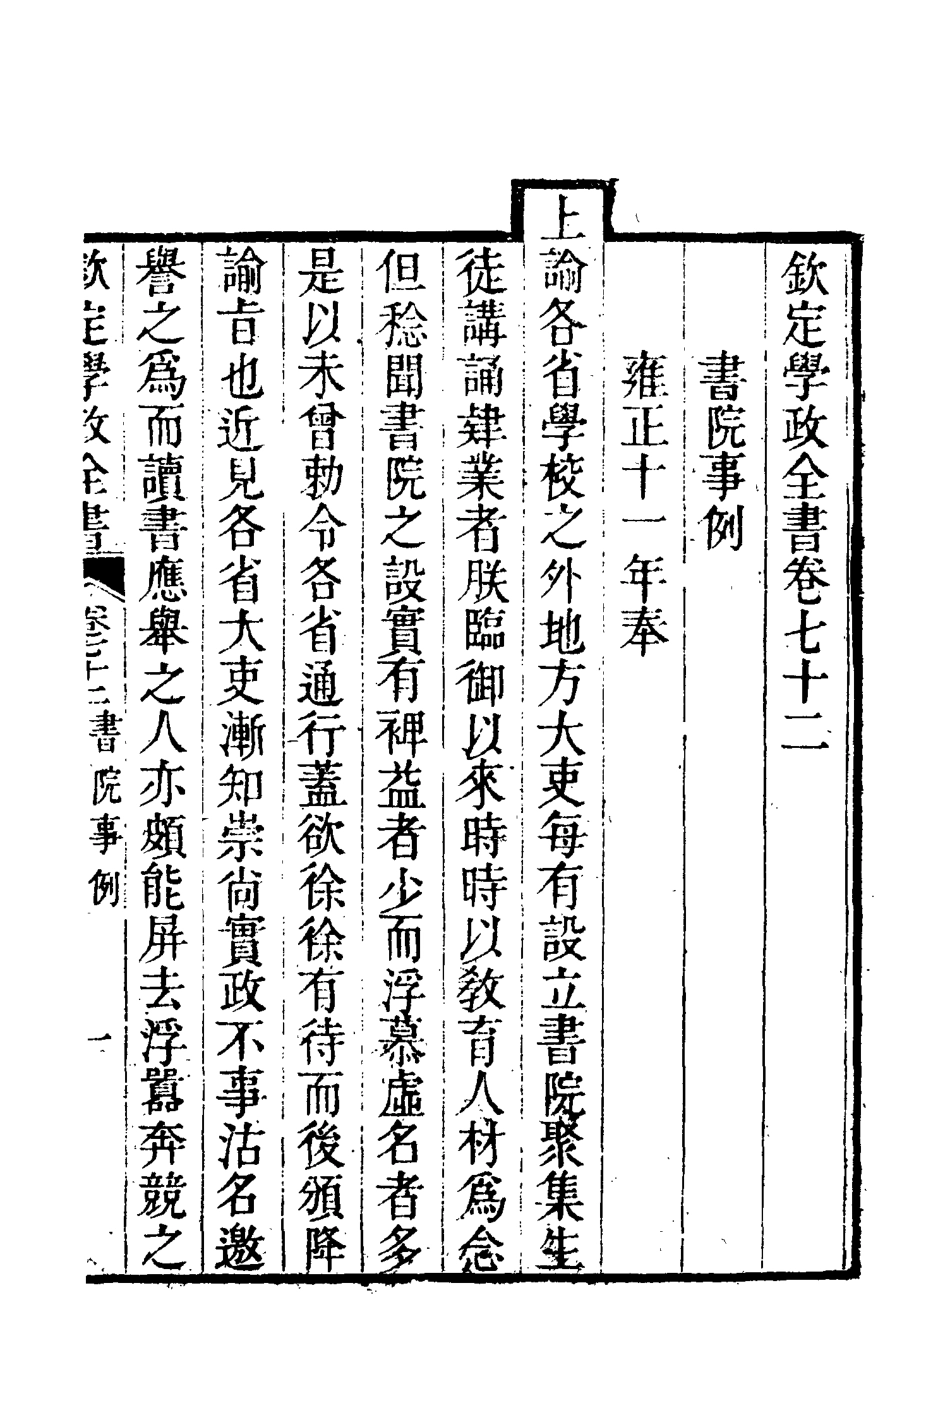 欽定學政全書卷七十二
書院事例
雍正十一年奉
上諭各省學校之外地方大吏每有設立書院聚集生
徒講誦肄業者朕臨御以來時時以敎育人材爲念
但稔聞書院之設實有裨益者少而浮慕虛名者多
是以未曾勅令各省通行蓋欲徐徐有待而後頒降
諭旨也近見各省大吏漸知崇尙實政不事沽名邀
譽之爲而讀書應舉之人亦頗能屏去浮囂奔競之
欽定學政全書 卷七十二書院事例 一